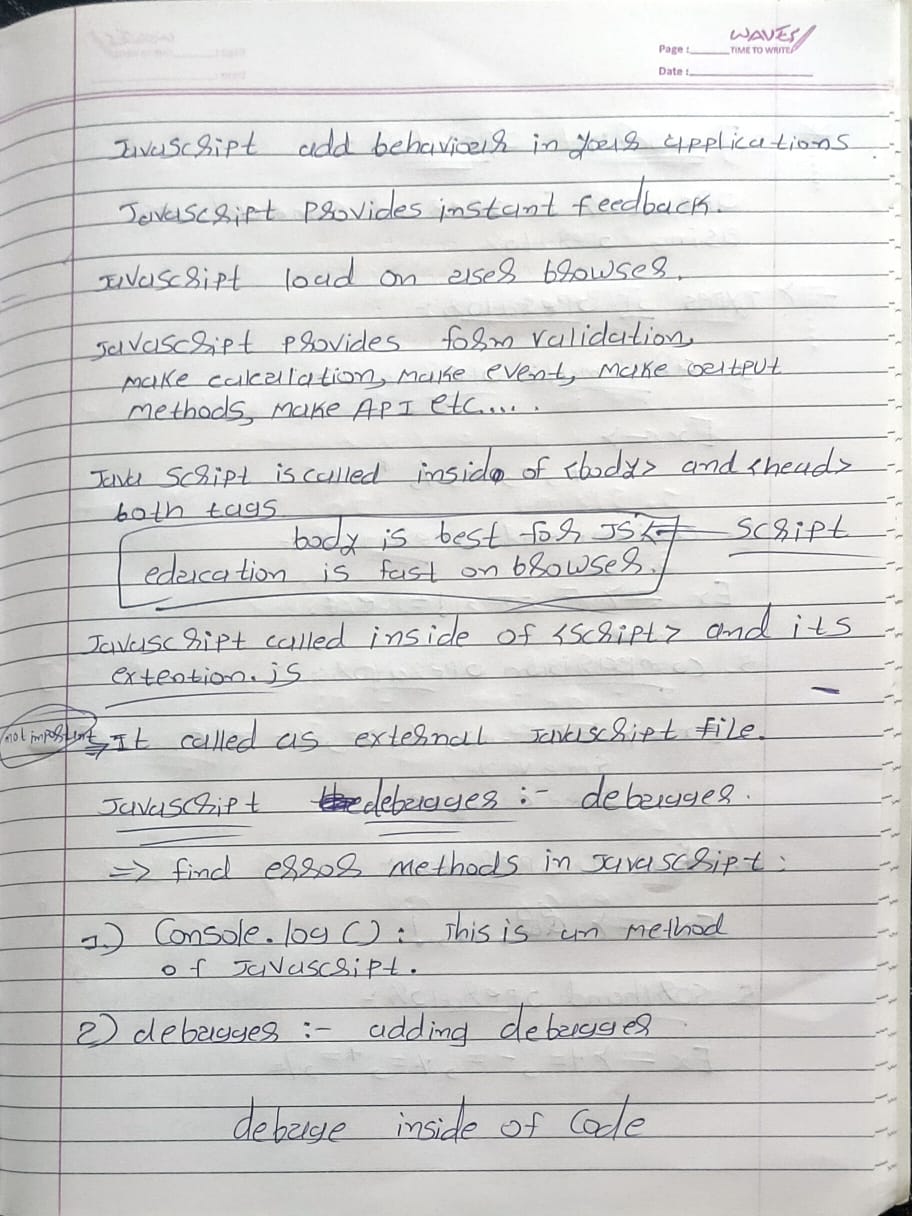 WAVES
Page : TIME TO WRITE
Date :
Javascript add behaviour in your applications
Javascript provides instant feedback.
Javascript load on user browser.
Javascript provides form validation,
make calculation, make event, make output
methods, make API etc....
Java Script is called inside of <body> and <head>
both tags
body is best for JS Script
education is fast on browser.
Javascript called inside of <script> and its
extention.js
not important => It called as external Javascript file.
Javascript debugger :- debugger.
=> find error methods in Javascript :
1.) Console.log () : This is an method
of Javascript.
2) debugger :- adding debugger
debuge inside of Code